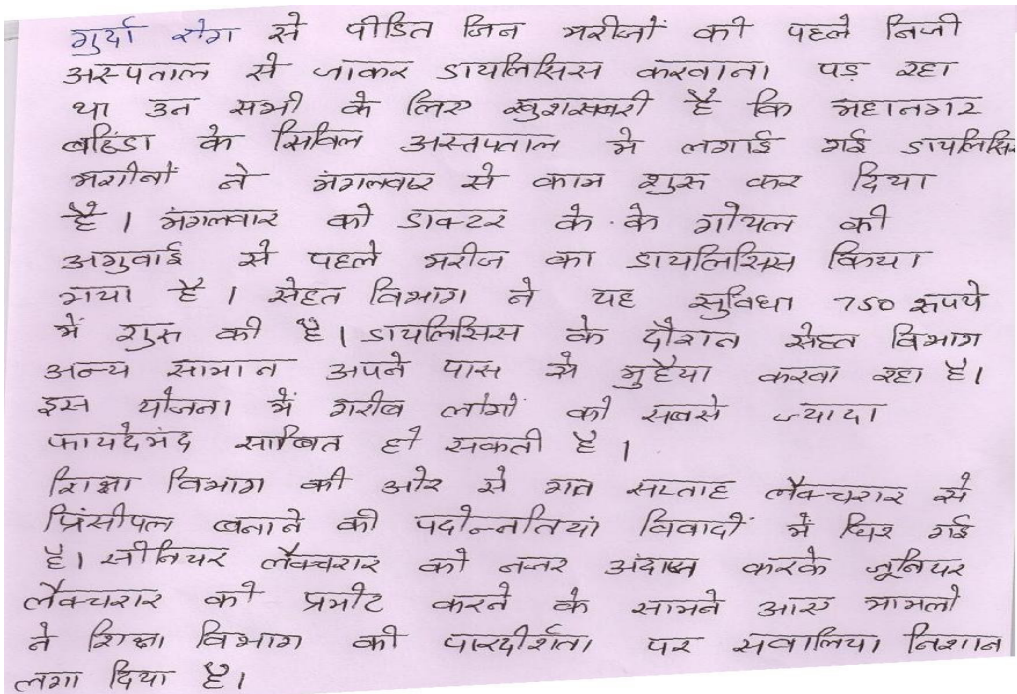 गुर्दा रोग से पीडित जिन मरीजों को पहले निजी
अस्पताल से जाकर डायलिसिस करवाना पड रहा
था उन सभी के लिए खुशखबरी है कि महानगर
बठिंडा के सिविल अस्तपताल मे लगाई गई डायलिसि
मशीनों ने मंगलवार से काम शुरू कर दिया
है। मंगलवार को डाक्टर के.के गोयल की
अगुवाई से पहले मरीज का डायलिसिस किया
गया है। सेहत विभाग ने यह सुविधा 750 रूपये
में शुरू की है। डायलिसिस के दौरान सेहत विभाग
अन्य सामान अपने पास से मुहैया करवा रहा है।
इस योजना में गरीब लोगों को सबसे ज्यादा
फायदेमंद साबित हो सकती है।
शिक्षा विभाग की ओर से गत सप्ताह लैक्चरार से
प्रिंसीपल बनाने की पदोन्नतियां विवादों में घिर गई
है। सीनियर लैक्चरार को नजर अंदाज करके जूनियर
लैक्चरार को प्रमोट करने के सामने आए मामलो
ने शिक्षा विभाग की पारदर्शिता पर सवालिया निशान
लगा दिया है।